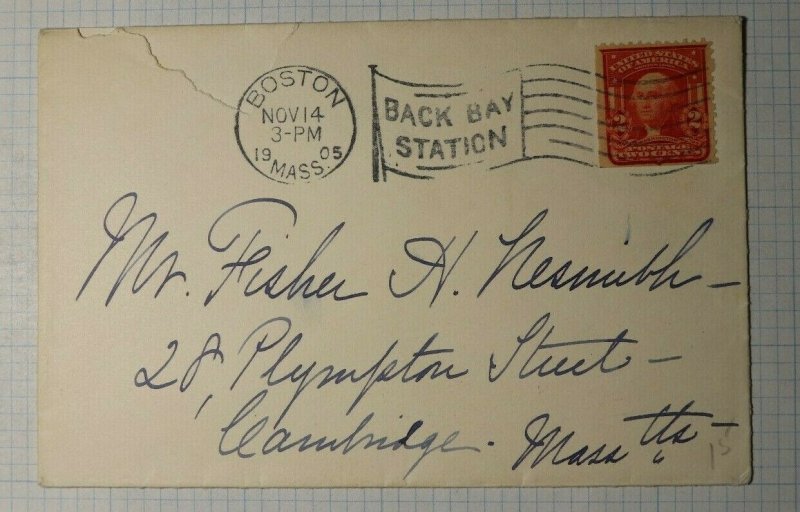 BOSTON
NOV 14
3-PM
19 05
MASS.
BACK BAY
STATION
UNITED STATES
OF AMERICA
2 2
POSTAGE
TWO CENTS
Mr. Fisher H. Nesmith
28, Plympton Street
Cambridge. Masstts
15